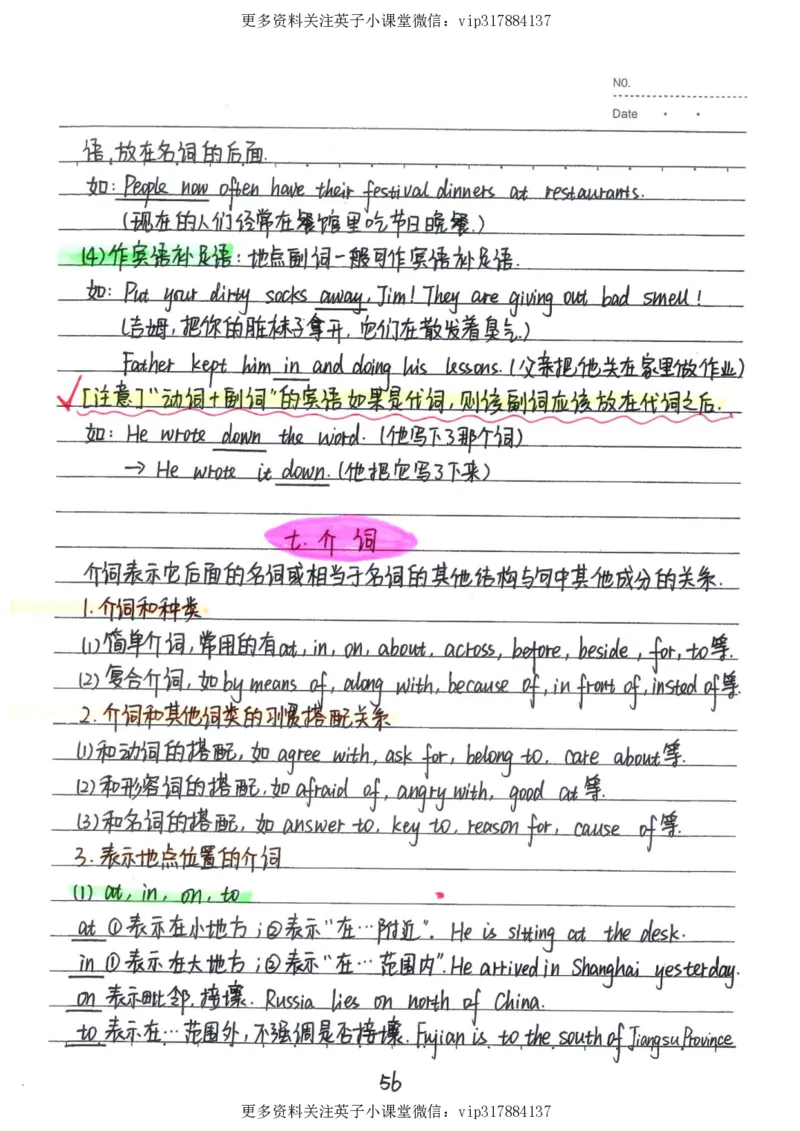 更多资料关注英子小课堂微信：vip317884137
NO.
Date
语,放在名词的后面.
如: People now often have their festival dinners at restaurants.
(现在的人们经常在餐馆里吃节日晚餐.)
(4)作宾语补足语:地点副词一般可作宾语补足语.
如: Put your dirty socks away, Jim! They are giving out bad smell!
(吉姆,把你的脏袜子拿开,它们在散发着臭气.)
Father kept him in and doing his lessons. (父亲把他关在家里做作业)
[注意]"动词+副词"的宾语如果是代词,则该副词应该放在代词之后.
如: He wrote down the word. (他写下了那个词)
→ He wrote it down. (他把它写了下来)
七.介 词
介词表示它后面的名词或相当于名词的其他结构与句中其他成分的关系.
1.介词和种类
(1)简单介词,常用的有at, in, on, about, across, before, beside, for, to等.
(2)复合介词,如by means of, along with, because of, in front of, insted of等.
2.介词和其他词类的习惯搭配关系
(1)和动词的搭配,如 agree with, ask for, belong to, care about等.
(2)和形容词的搭配,如afraid of, angry with, good at等.
(3)和名词的搭配,如 answer to, key to, reason for, cause of等.
3.表示地点位置的介词
(1) at, in, on, to
at ①表示在小地方;②表示"在…附近". He is sitting at the desk.
in ①表示在大地方;②表示"在…范围内". He arrived in Shanghai yesterday.
on 表示毗邻,接壤. Russia lies on north of China.
to 表示在…范围外,不强调是否接壤. Fujian is to the south of Jiangsu Province
56
更多资料关注英子小课堂微信：vip317884137